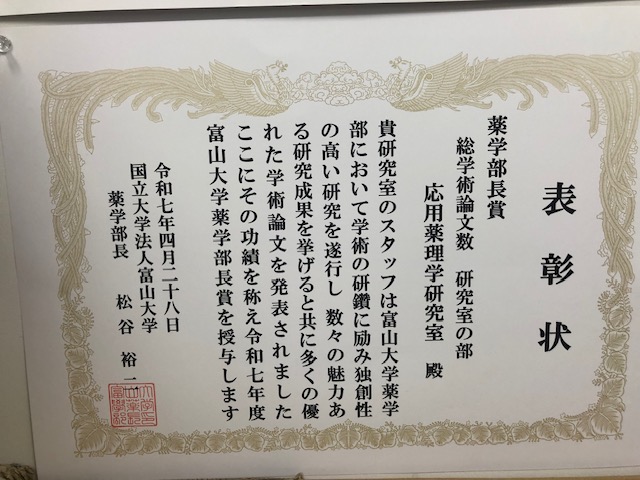 表彰状
薬学部長賞
総学術論文数 研究室の部
応用薬理学研究室 殿
貴研究室のスタッフは富山大学薬学
部において学術の研鑽に励み独創性
の高い研究を遂行し 数々の魅力あ
る研究成果を挙げると共に多くの優
れた学術論文を発表されました
ここにその功績を称え令和七年度
富山大学薬学部長賞を授与します
令和七年四月二十八日
国立大学法人富山大学
薬学部長 松谷 裕二